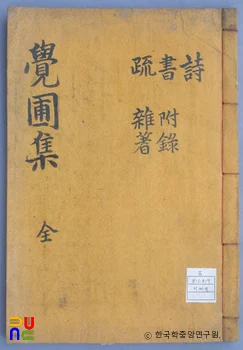 覺圃集
全
詩
書 附錄
疏 雜著
ⓒ 한국학중앙연구원